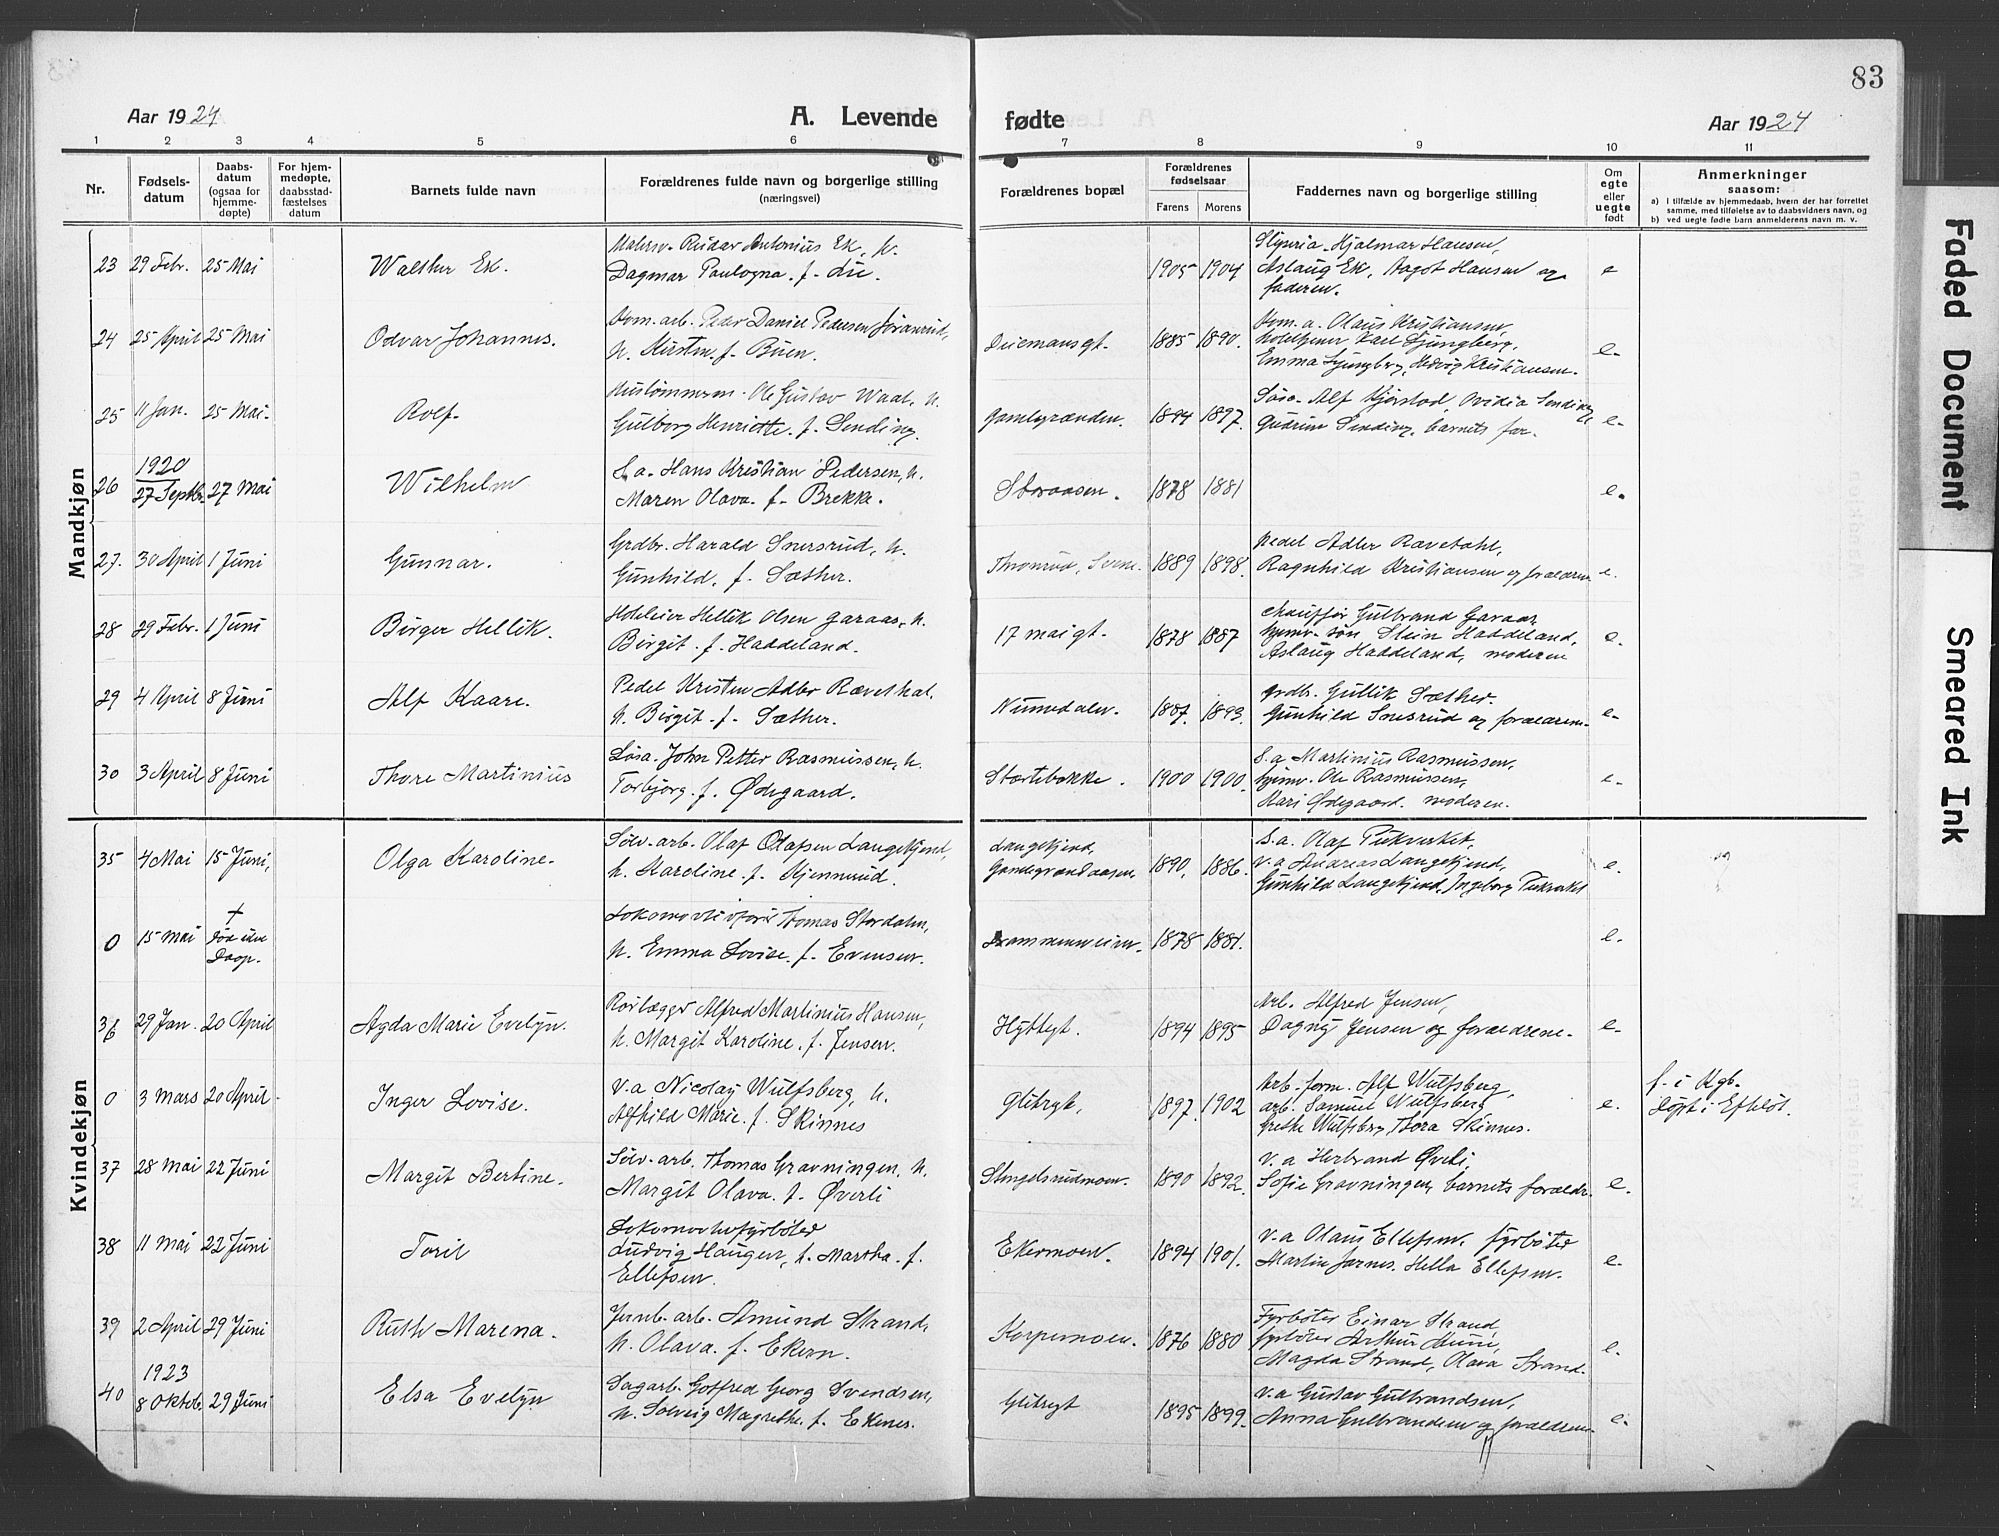 83
Aar 1924 A. Levende fødte Aar 1924
1 2 3 4 5 6 7 8 9 10 11
Nr. Fødselsdatum Daabsdatum (ogsaa for hjemmedøpte) For hjemmedøpte, daabsstadfæstelses datum Barnets fulde navn Forældrenes fulde navn og borgerlige stilling (næringsvei) Forældrenes bopæl Forældrenes fødselsaar Farens Morens Faddernes navn og borgerlige stilling Om egte eller uegte født Anmerkninger saasom:
a) I tilfælde av hjemmedaab, hvem der har forrettet samme, med tilføielse av to daabsvidners navn, og
b) ved uegte fødte barn anmelderens navn m. v.
Mandkjøn
23 29 Febr. 25 Mai Walther Ek. Rudar Antonius Ek, h. 1905 1904 Hjalmar Hansen, e
Dagmar Paulogna. f. Lie. Aslaug Ek, Aagot Hansen og
faderen.
24 25 April 25 Mai Odvar Johannes. Kom. arb. Peder Daniel Pedersen Jøranrud, 1885 1890. Kom. a. Olaus Kristiansen, e.
h. Kirsten. f. Buen. Karl Ljungberg,
Emma Ljungberg, Hedvig Kristiansen.
25 11 Jan. 25 Mai. Rolf. Ole Gustav Waal. h. Gamlegrænden. 1894 1897. Løsa. Alf Kjørstad, Ovidia Sending e.
Gulborg Henriette. f. Sending. Gudrun Sending, barnets far.
26 1920 27 Septbr. 27 Mai Wilhelm S.a. Hans Kristian Pedersen, h. Storaasen. 1878 1881 e.
Maren Olava. f. Brekke.
27. 30 April 1 Juni Gunnar. Grdbr. Harald Snersrud, h. 1889 1898. Pedel Adler Rævedahl, e.
Gunhild, f. Sæther. Ragnhild Kristiansen og forældrene
28 29 Febr. 1 Juni Birger Hellik. Hoteleier Hellik Olsen Garaas, h. 17 maigt. 1878 1887 Chauffør Gulbrand Garaas, e.
Birgit. f. Haddeland. søn Stein Haddeland,
Aslaug Haddeland, moderen
29 4 April 8 Juni Alf Kaare. Pedel Kristen Adler Rævedal. Numedalsv. 1887. 1893. Grdbr. Gullik Sæther. e.
h. Birgit. f. Sæther. Gunhild Snesrud og forældrene.
30 3 April 8 Juni Thore Martinius Løsa. John Petter Rasmussen, h. Støttebakke. 1900 1900. S.a Martinius Rasmussen, e.
Torbjørg. f. Ødegaard. Ole Rasmussen,
Kari Ødegaard. moderen.
Kvindekjøn
35 4 Mai 15 Juni, Olga Karoline. Sølv. arb. Olaf Olafsen Langekjend, Langekjend, 1890, 1886. S.a. Olaf e.
h. Karoline. f. Kjennerud. v.a Andreas Langekjend,
Gunhild Langekjend, Ingeborg
0 15 mai † Død uden Daap. Lokomotivfører Thomas Stordahn, 1878 1881. e.
h. Emma Lovise. f. Evensen.
36 29 Jan. 20 April Agda Marie Evelyn. Rørlægger Alfred Martinius Hansen, Hyttegt. 1894 1895 Arb. Alfred Jensen, e.
h. Margit Karoline. f. Jensen. Dagny Jensen og forældrene.
0 3 Mars 20 April Inger Lovise. v.a Nicolay Wulfsberg, h. Glitregt. 1897. 1902 Arb. form. Alf Wulfsberg, e. f. i Kgb.
Alfhild Marie. f. Skinnes arb. Samuel Wulfsberg Døpt i Efteløt.
Grethe Wulfsberg Thora Skinnes.
37 28 Mai 22 Juni Margit Bertine. Sølv. arb. Thomas Gravningen, h. Stengelsrudmoen. 1890 1892. v.a Herbrand Øverli, e.
Margit Olava. f. Øverli Sofie Gravningen, barnets forældr.
38 11 Mai 22 Juni Toril Lokomotivfyrbøter Ekermoen. 1894 1901. v.a Olaus Ellefsen. fyrbøter e.
Ludvig Haugen, h. Martha. f. Martin Hella Ellefsen.
Ellefsen.
39 2 April 29 Juni Ruth Marena. Jernb. arb. Amund Strand, Korpemoen. 1876 1880 Fyrbøter Einar Strand e.
h. Olava. f. Ekern. fyrbøter Arthur
Magda Strand, Olava Strand.
40 1923 8 Oktob. 29 Juni Elsa Evelyn Sagarb. Gotfred Georg Svendsen, Glitregt 1895 1899. v.a Gustav Gulbrandsen, e.
h. Solveig Magrethe. f. Ekenes. Anna Gulbrandsen og forældrene.
Faded Document
Smeared Ink